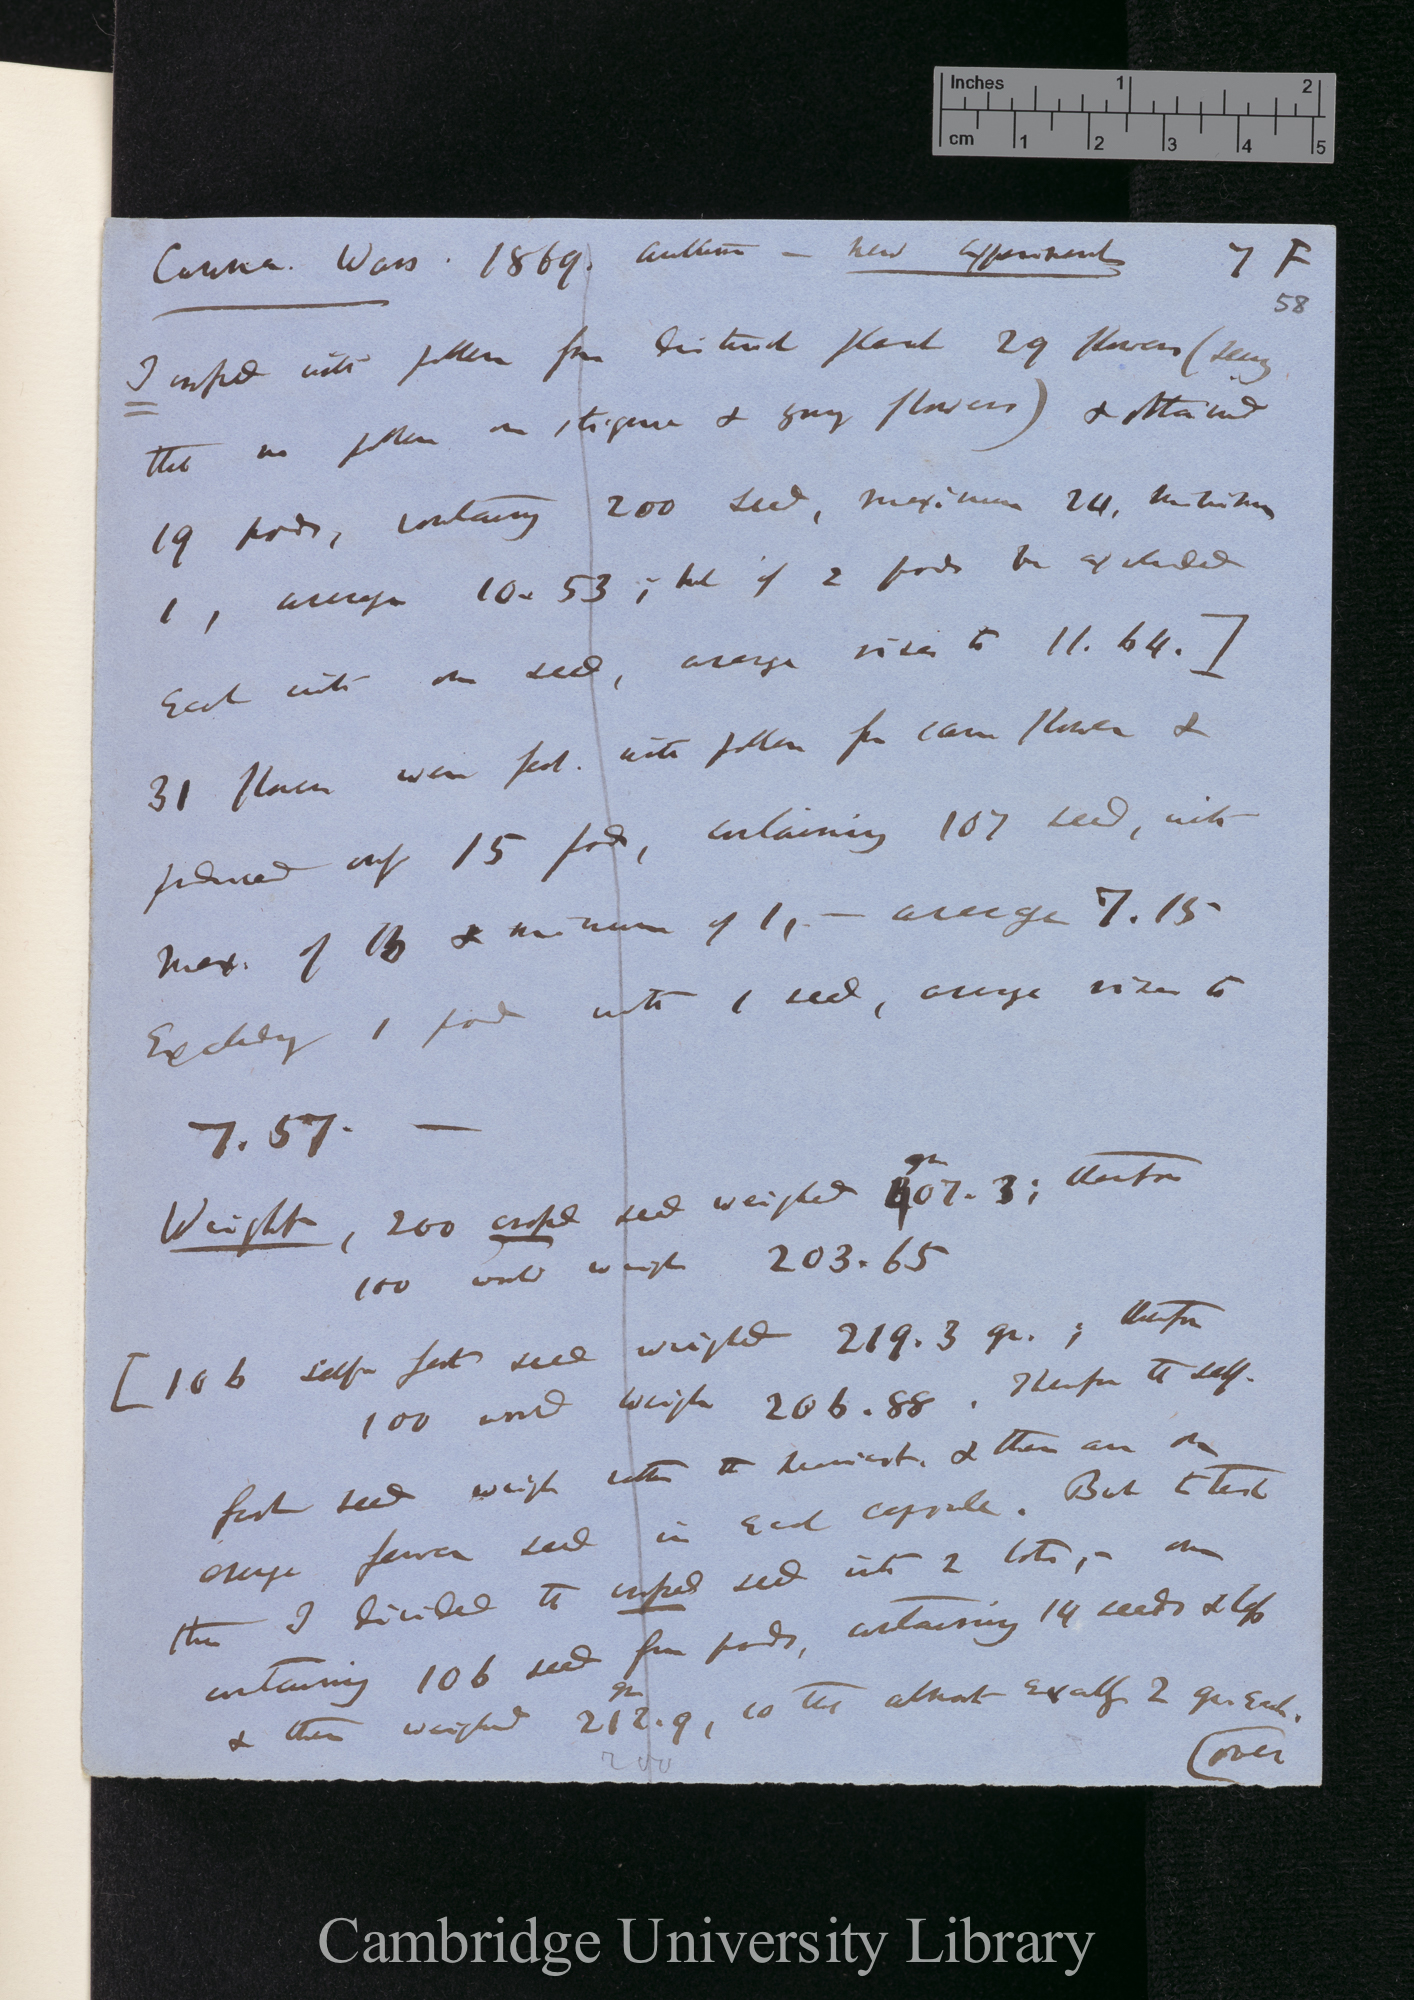 Inches 1 2
cm 1 2 3 4 5
Canna. Wars. 1869. autumn — new experiments 7 F
58
I crossed with pollen from distinct plant 29 flowers (seeing
that no pollen on stigma & young flowers) & obtained
19 pods, containing 200 seed, maximum 24, minimum
1, average 10.53; but if 2 pods be excluded
each with one seed, average rises to 11.64.]
31 flowers were fert. with pollen from same flower &
produced only 15 pods, containing 107 seed, with
max. of & minimum of 1, — average 7.15
Excluding 1 pod with 1 seed, average rises to
7.57. —
Weights, 200 crossed seed weighed gr 407.3; therefore
100 would weigh 203.65
[106 self fert seed weighed 219.3 gr.; therefore
100 would weigh 206.88. Therefore the self-
fert seed weigh rather the heaviest. & there are on
average fewer seed in each capsule. But to test
this I divided the crossed seed into 2 lots, — one
containing 106 seed from pods, containing 14 seeds & less
& these weighed gr 212.9, so that almost exactly 2 gr. each.
200
(over
Cambridge University Library